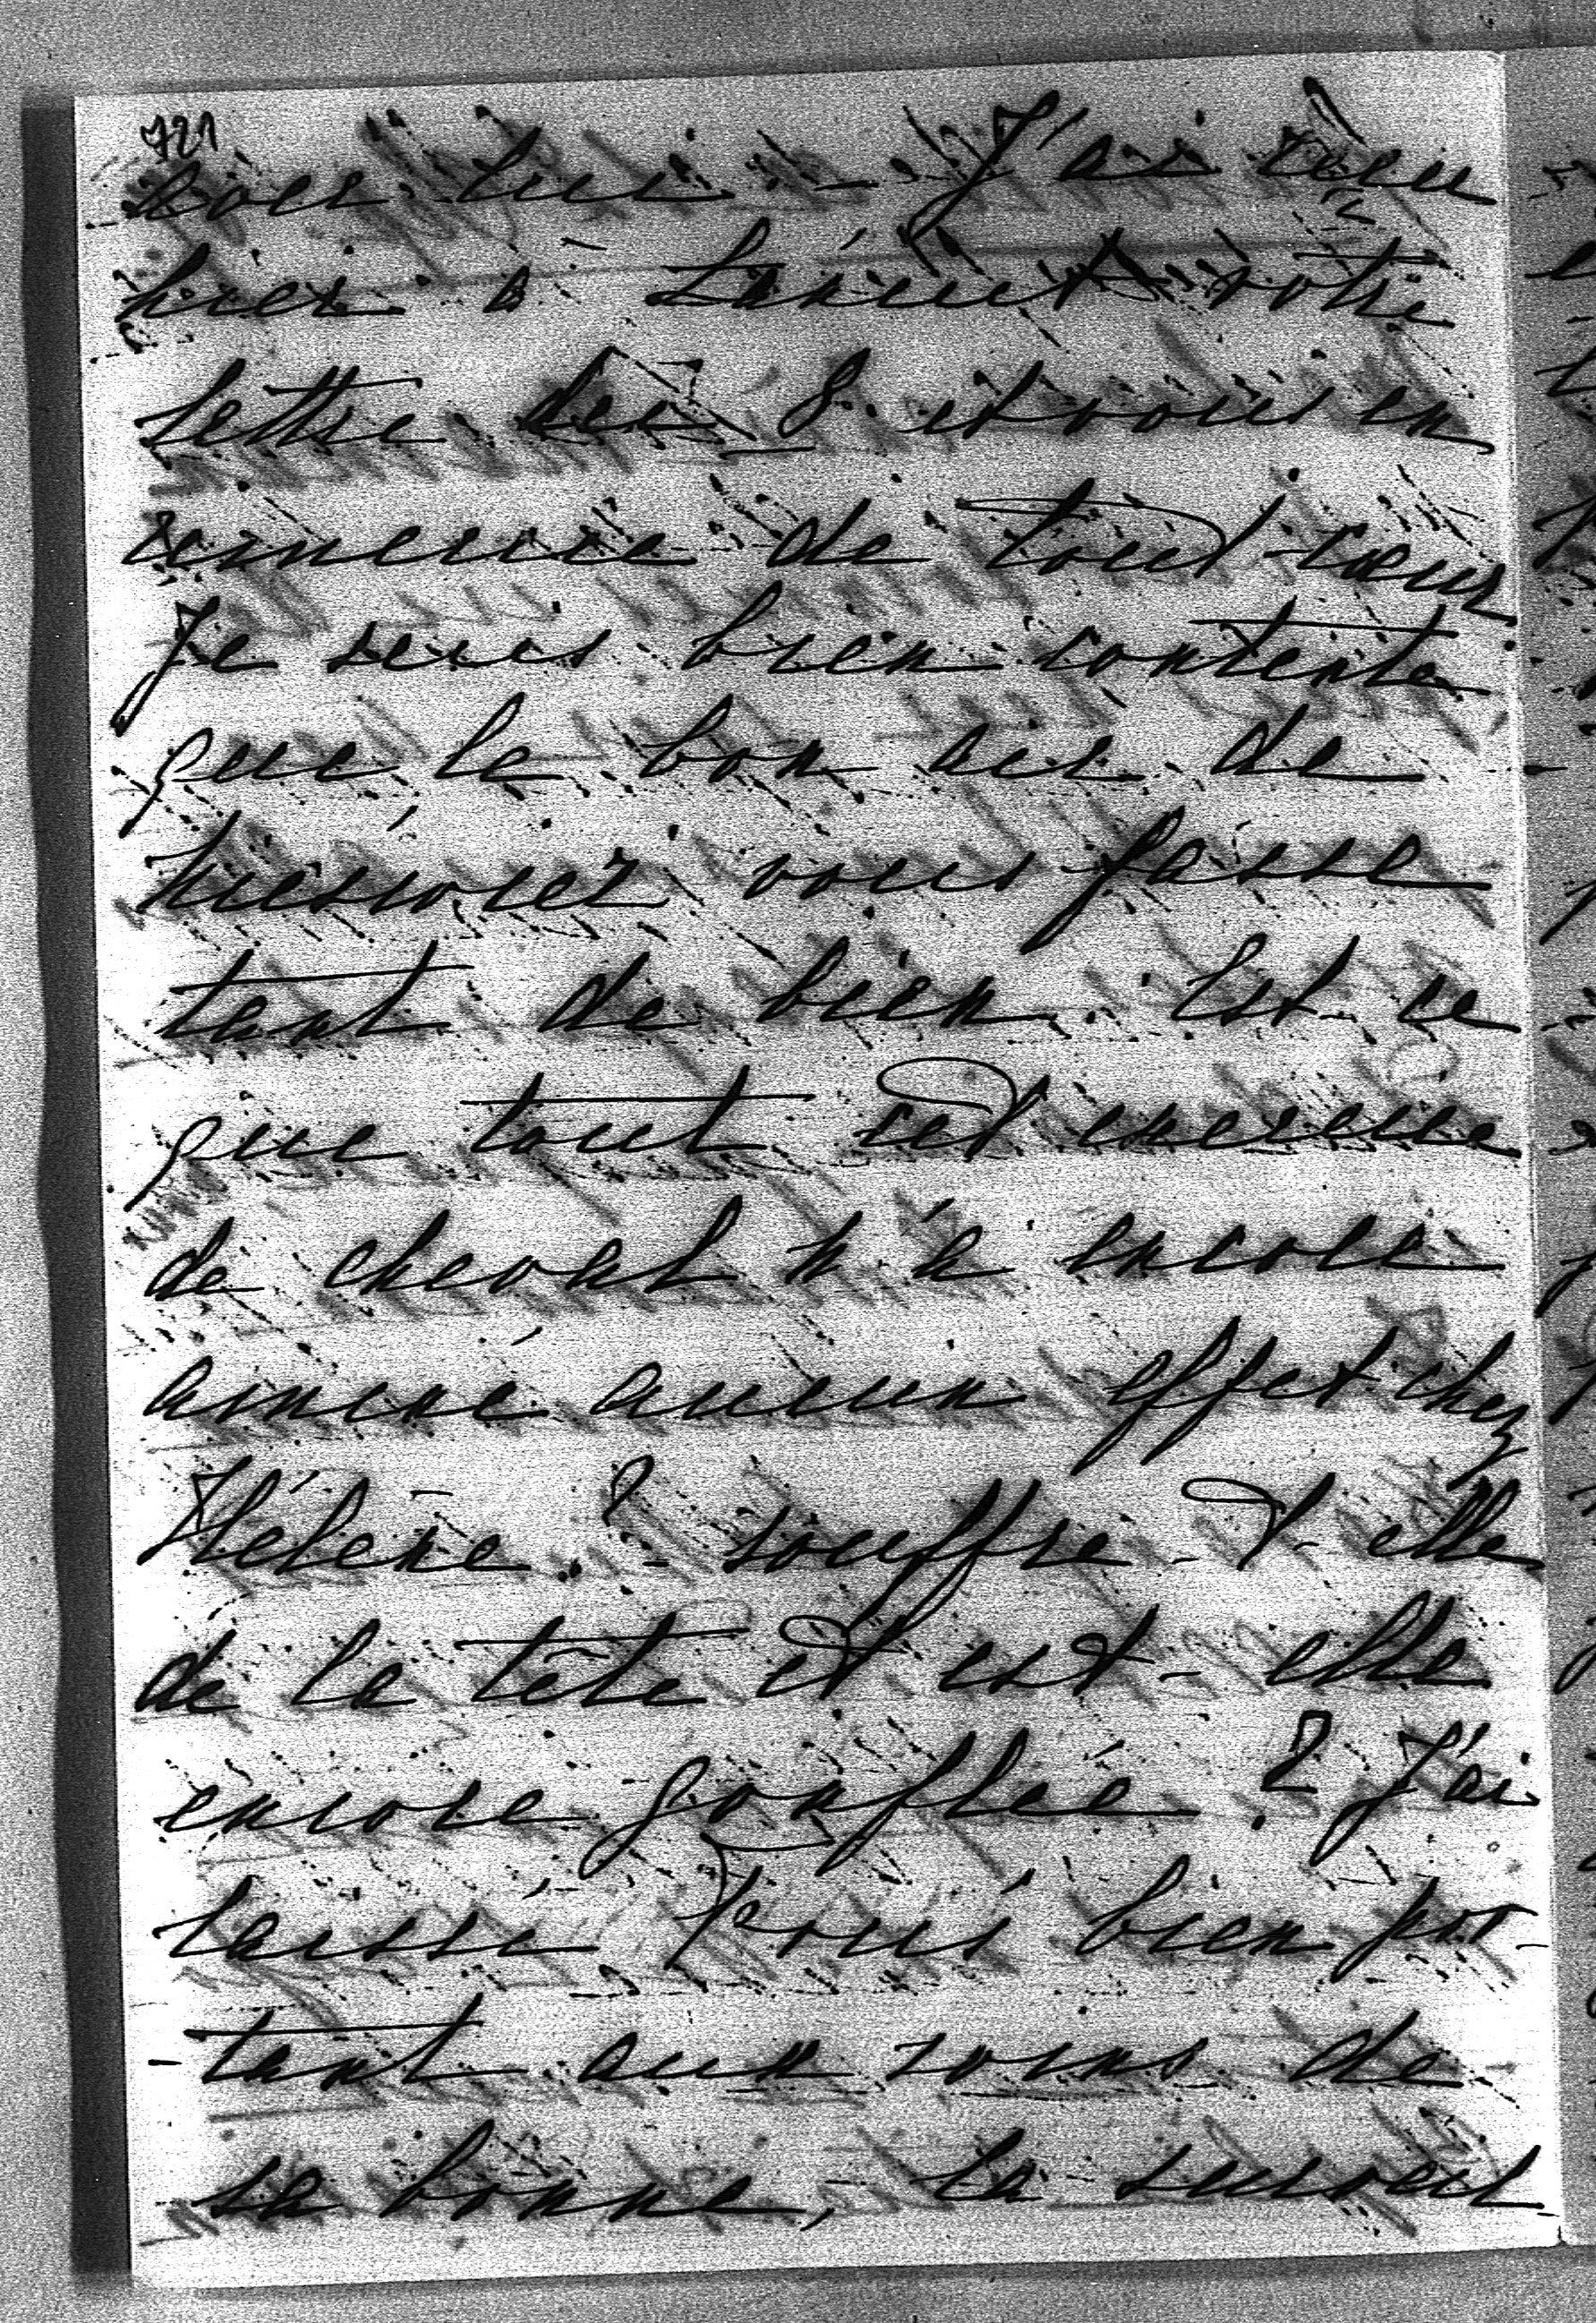 721
pour lui. — J'ai reçu
hier à Tanüt votre
lettre du 8 et vous en
remercie de tout cœur
Je suis bien contente
que le bon air de
vous fasse
tant de bien. Est ce
que tout cet exercice
de cheval n'a encore
amené aucun effet chez
Hélène ? souffre-t-elle
de la tête et est-elle
encore gonflée ? J'ai
laissé bien por-
-tant aux soins de
sa bonne, la